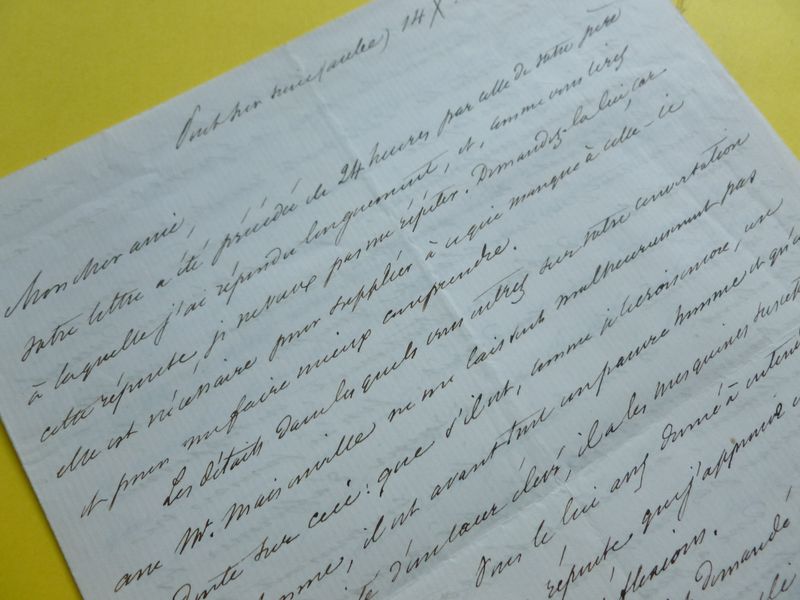 Pont sur seine (aube) 14 X
Mon cher ami,
Votre lettre a été précédée de 24 heures par celle de votre père
à laquelle j'ai répondu longuement, et, comme vous lirez
cette réponse, je ne veux pas me répéter. Demandez-la lui, car
elle est nécessaire pour suppléer à ce qui manque à celle-ci
et pour me faire mieux comprendre.
Les détails dans lesquels vous entrez sur votre conversation
avec Mr. Maisonville ne me laissent malheureusement pas
doute sur ceci: que s'il est, comme je le crois encore, un
homme, il est avant tout un pauvre homme et qu'à
d'un cœur élevé, il a les mesquines
Vous le lui avez donné à entendre
réponse que j'approuve
réflexions.
demandé